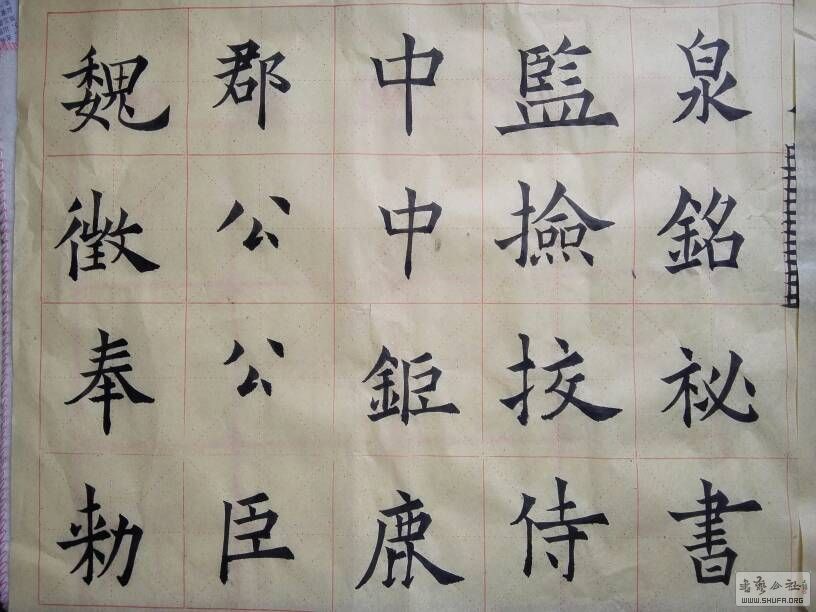 泉銘祕書
監撿挍侍
中中鉅鹿
郡公公臣
魏徵奉勑
书藝公社
WWW.SHUFA.ORG